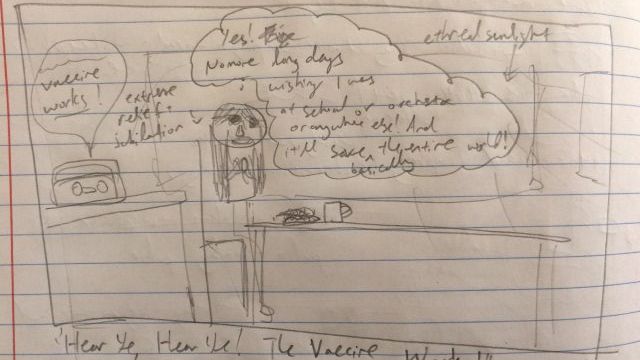 Yes!
No more long days
wishing I was
at school or orchestra
or anywhere else! And
it'll save the entire world!
basically
ethereal sunlight
vaccine
works!
extreme
relief +
jubilation
'Hear Ye, Hear Ye! The Vaccine Works!!'